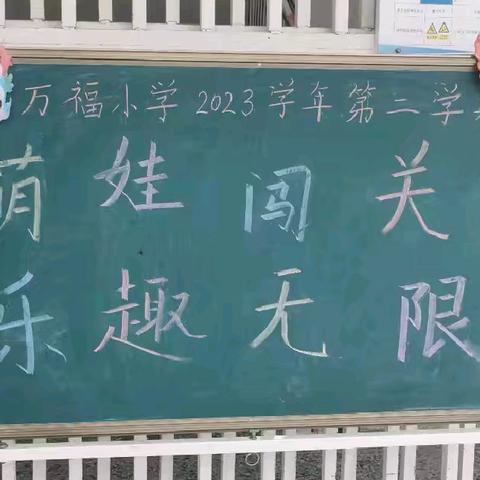 万福小学2023学年第二学
萌娃闯关
乐趣无限